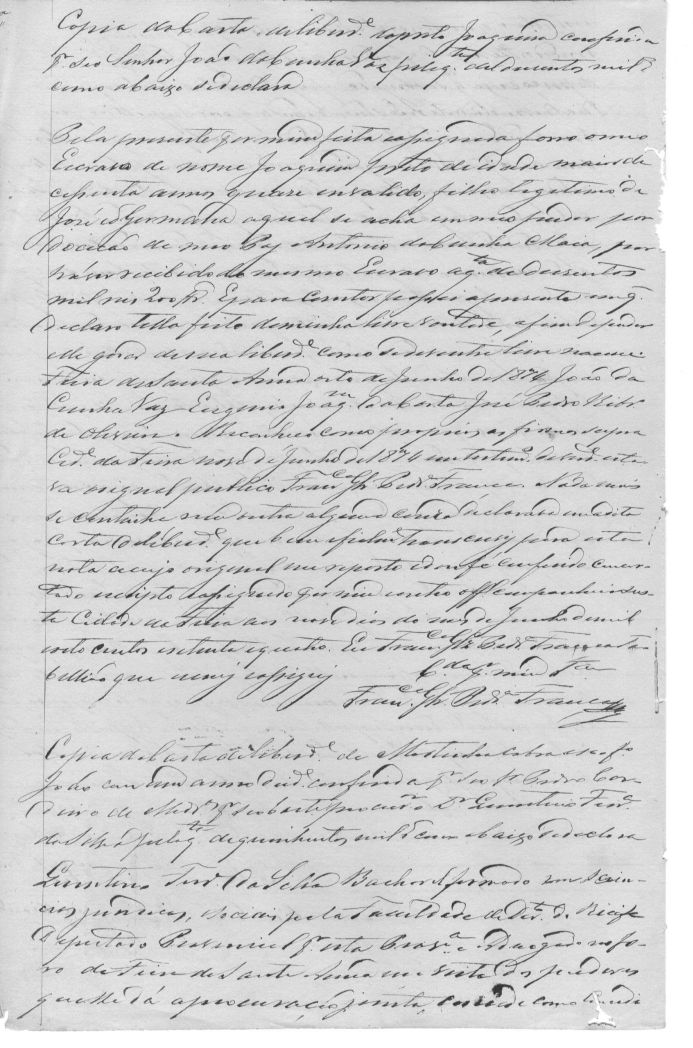 Copia da Carta de liberd.e do preto Joaquim conferida
p.r seo Senhor João da Cunha Vaz pela q.ta de dusentos mil r
como abaixo se declara
Pela presente por mim feita e assignada forro o meo
Escravo de nome Joaquim preto de idade maior de
cessenta annos quaze invalido, filho legitimo de
José e Germana aquel se acha em meo puder por
doação de meo Pay Antonio da Cunha Maia, por
haver recibido do mesmo Escravo a q.ta de dusentos
mil reis 200 E para constar passei a presente em q.
declaro tella feito de minha livre vontade, afim de poder
elle gozar de sua liberd.e como se de ventre livre nacece
Feira de Santa Anna oito de Junho de 1874 João da
Cunha Vaz Eugenio Joaq.m da Costa José Pedro
de Oliveira. Reconheco como proprias as firmas supra
Cid.e da Feira nove de Junho de 1874 em testem.o de verd.e estava
o signal publico Fran.co Pedr.a Franco. Nada mais
se continha nem outra alguma couza declarava em a dita
carta de liberd.e que bem e fielm.te transcrevy para esta
nota a cujo original me reporto e dou fé conferido concertado
escripto e assignado por mim e outro off.al companheiro nesta
Cidade da Feira aos nove dias do mes de Junho de mil
oito centos e setenta e quatro. Eu Fran.co Pedr.a Franco Ta
bellião que escrevy e assigney
C.da p.r mim T.am
Fran.co Pedr.a Franco
Copia da Carta de liberd.e de Martinha cabra e seo f.o
João com um anno de id.e conferida p.r seo S.r Pedro Cor
deiro de p.r seo bast.e procur.or o D.r Leontino
da Silva pela q.ta de quinhentos mil r como abaixo se declara
da Silva Bachar.el formado em Scien
cias juridicas, e sociaes pela Faculdade de Dir.to do Recife
Deputado Provincial p.r esta Prov.a e Advogado no fo
ro da Feira de Santa Anna em virtude dos poderes
que lhe dá a procuração junta, concede como